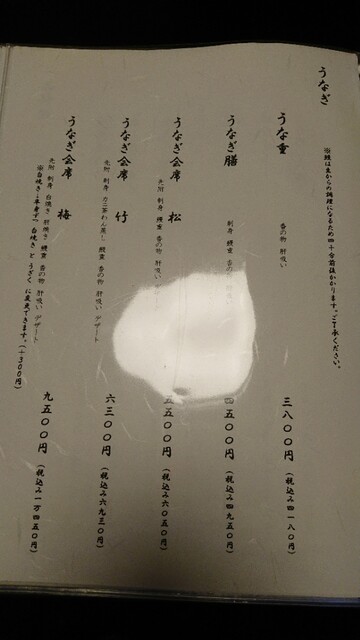 うなぎ
※鰻は生からの調理になるため四十分前後かかります。ご了承ください。
うな重
香の物 肝吸い
三八〇〇円 (税込み四一八〇円)
うなぎ膳
刺身 鰻重 香の物
四五〇〇円 (税込み四九五〇円)
うなぎ会席 松
先附 刺身 鰻重 香の物
五五〇〇円 (税込み六〇五〇円)
うなぎ会席 竹
先附 刺身 カニ茶わん蒸し 鰻重 香の物 肝吸い デザート
六三〇〇円 (税込み六九三〇円)
うなぎ会席 梅
先附 刺身 白焼き 肝焼き 鰻重 香の物 肝吸い デザート
九五〇〇円 (税込み一万四五〇円)
※白焼き・半身ずつ 白焼き とうざく に変更できます。(+300円)